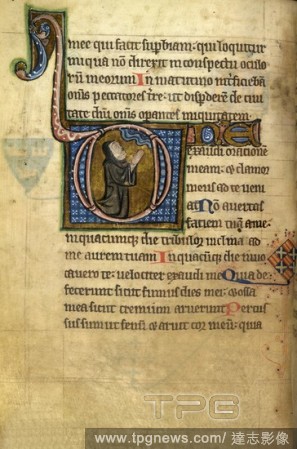 mee qui facit supbiam: qui loquitur
iniqua nō direxit in conspectu oculo
rū meorum In matutino intficiebā
om̄s peccatores tre: ut dispderē de ciui
tate dn̄i om̄s opantes iniquitatem
DNE
exaudi orationē
meam: et clamor
meus ad te veni
at Non auertas
faciem
in quacumque die tribulor inclina ad
me aurem tuam In quacumque die inuo
cauero te: velociter exaudi me Quia de
fecerunt sicut fumus dies mei: et ossa
mea sicut cremium aruerunt Percus
sus sum ut fenū et aruit cor meū: quia
TPG
www.tpgnews.com/ 達志影像